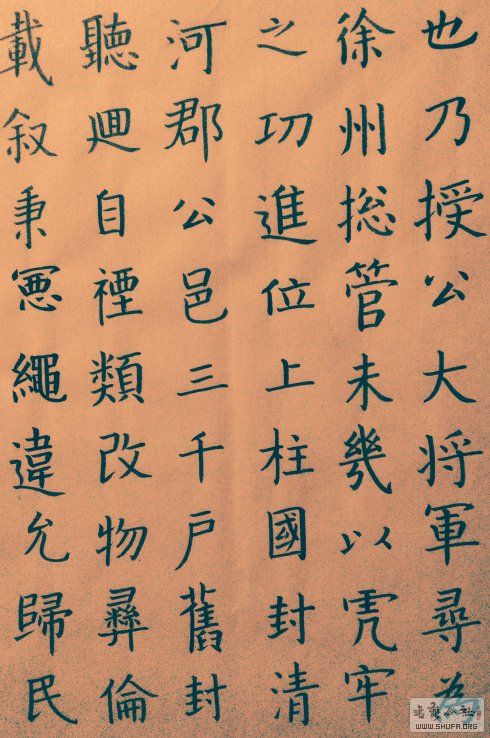 也乃授公大将軍尋為
徐州捴管未幾以虎牢
之功進位上柱國封清
河郡公邑三千户舊封
聽廻自禋類改物彝倫
載叙秉憲繩違允歸民
书法公社
WWW.SHUFA.ORG